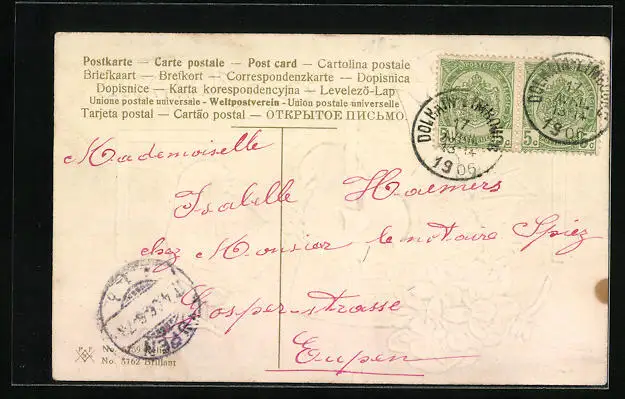 Postkarte — Carte postale — Post card — Cartolina postale
Briefkaart — Brefkort — Correspondenzkarte — Dopisnica
Dopisnice - Karta korespondencyjna — Levelező-Lap
Unione postale universale - Weltpostverein - Union postale universelle
Tarjeta postal — Cartão postal — ОТКРЫТОЕ ПИСЬМО.
DOLHAIN-LIMBOURG
17
13-14
1906
DOLHAIN-LIMBOURG
17
13-14
1906
5c
Mademoiselle
Isabelle Haemers
chez Monsieur le notaire Spiez
Gosper-strasse
Eupen
EUPEN
No. 5769 Relief
No. 5762 Brillant